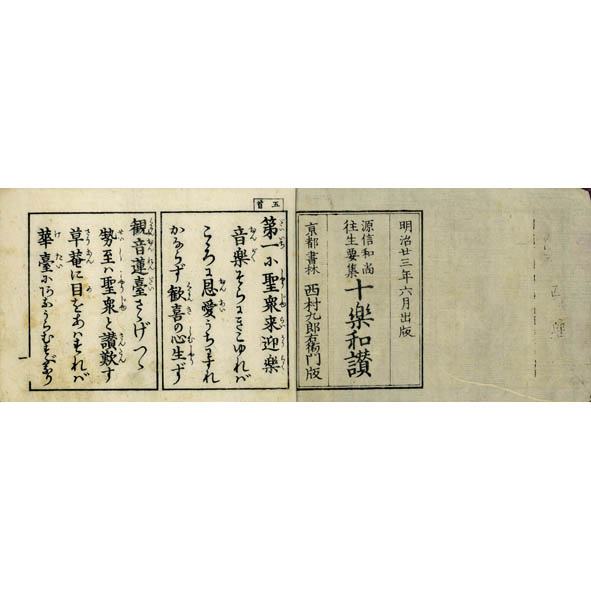 明治廿三年六月出版
源信和尚
往生要集
十樂和讃
京都書林 西村九郎右衛門版
五首
第一に聖衆来迎楽
音楽そらにきこゆれバ
こゝろに恩愛うちわすれ
かならず歓喜の心生ず
観音蓮臺さゝげつゝ
勢至ハ聖衆と讃歎す
草菴に目をあハすれバ
華臺に
一